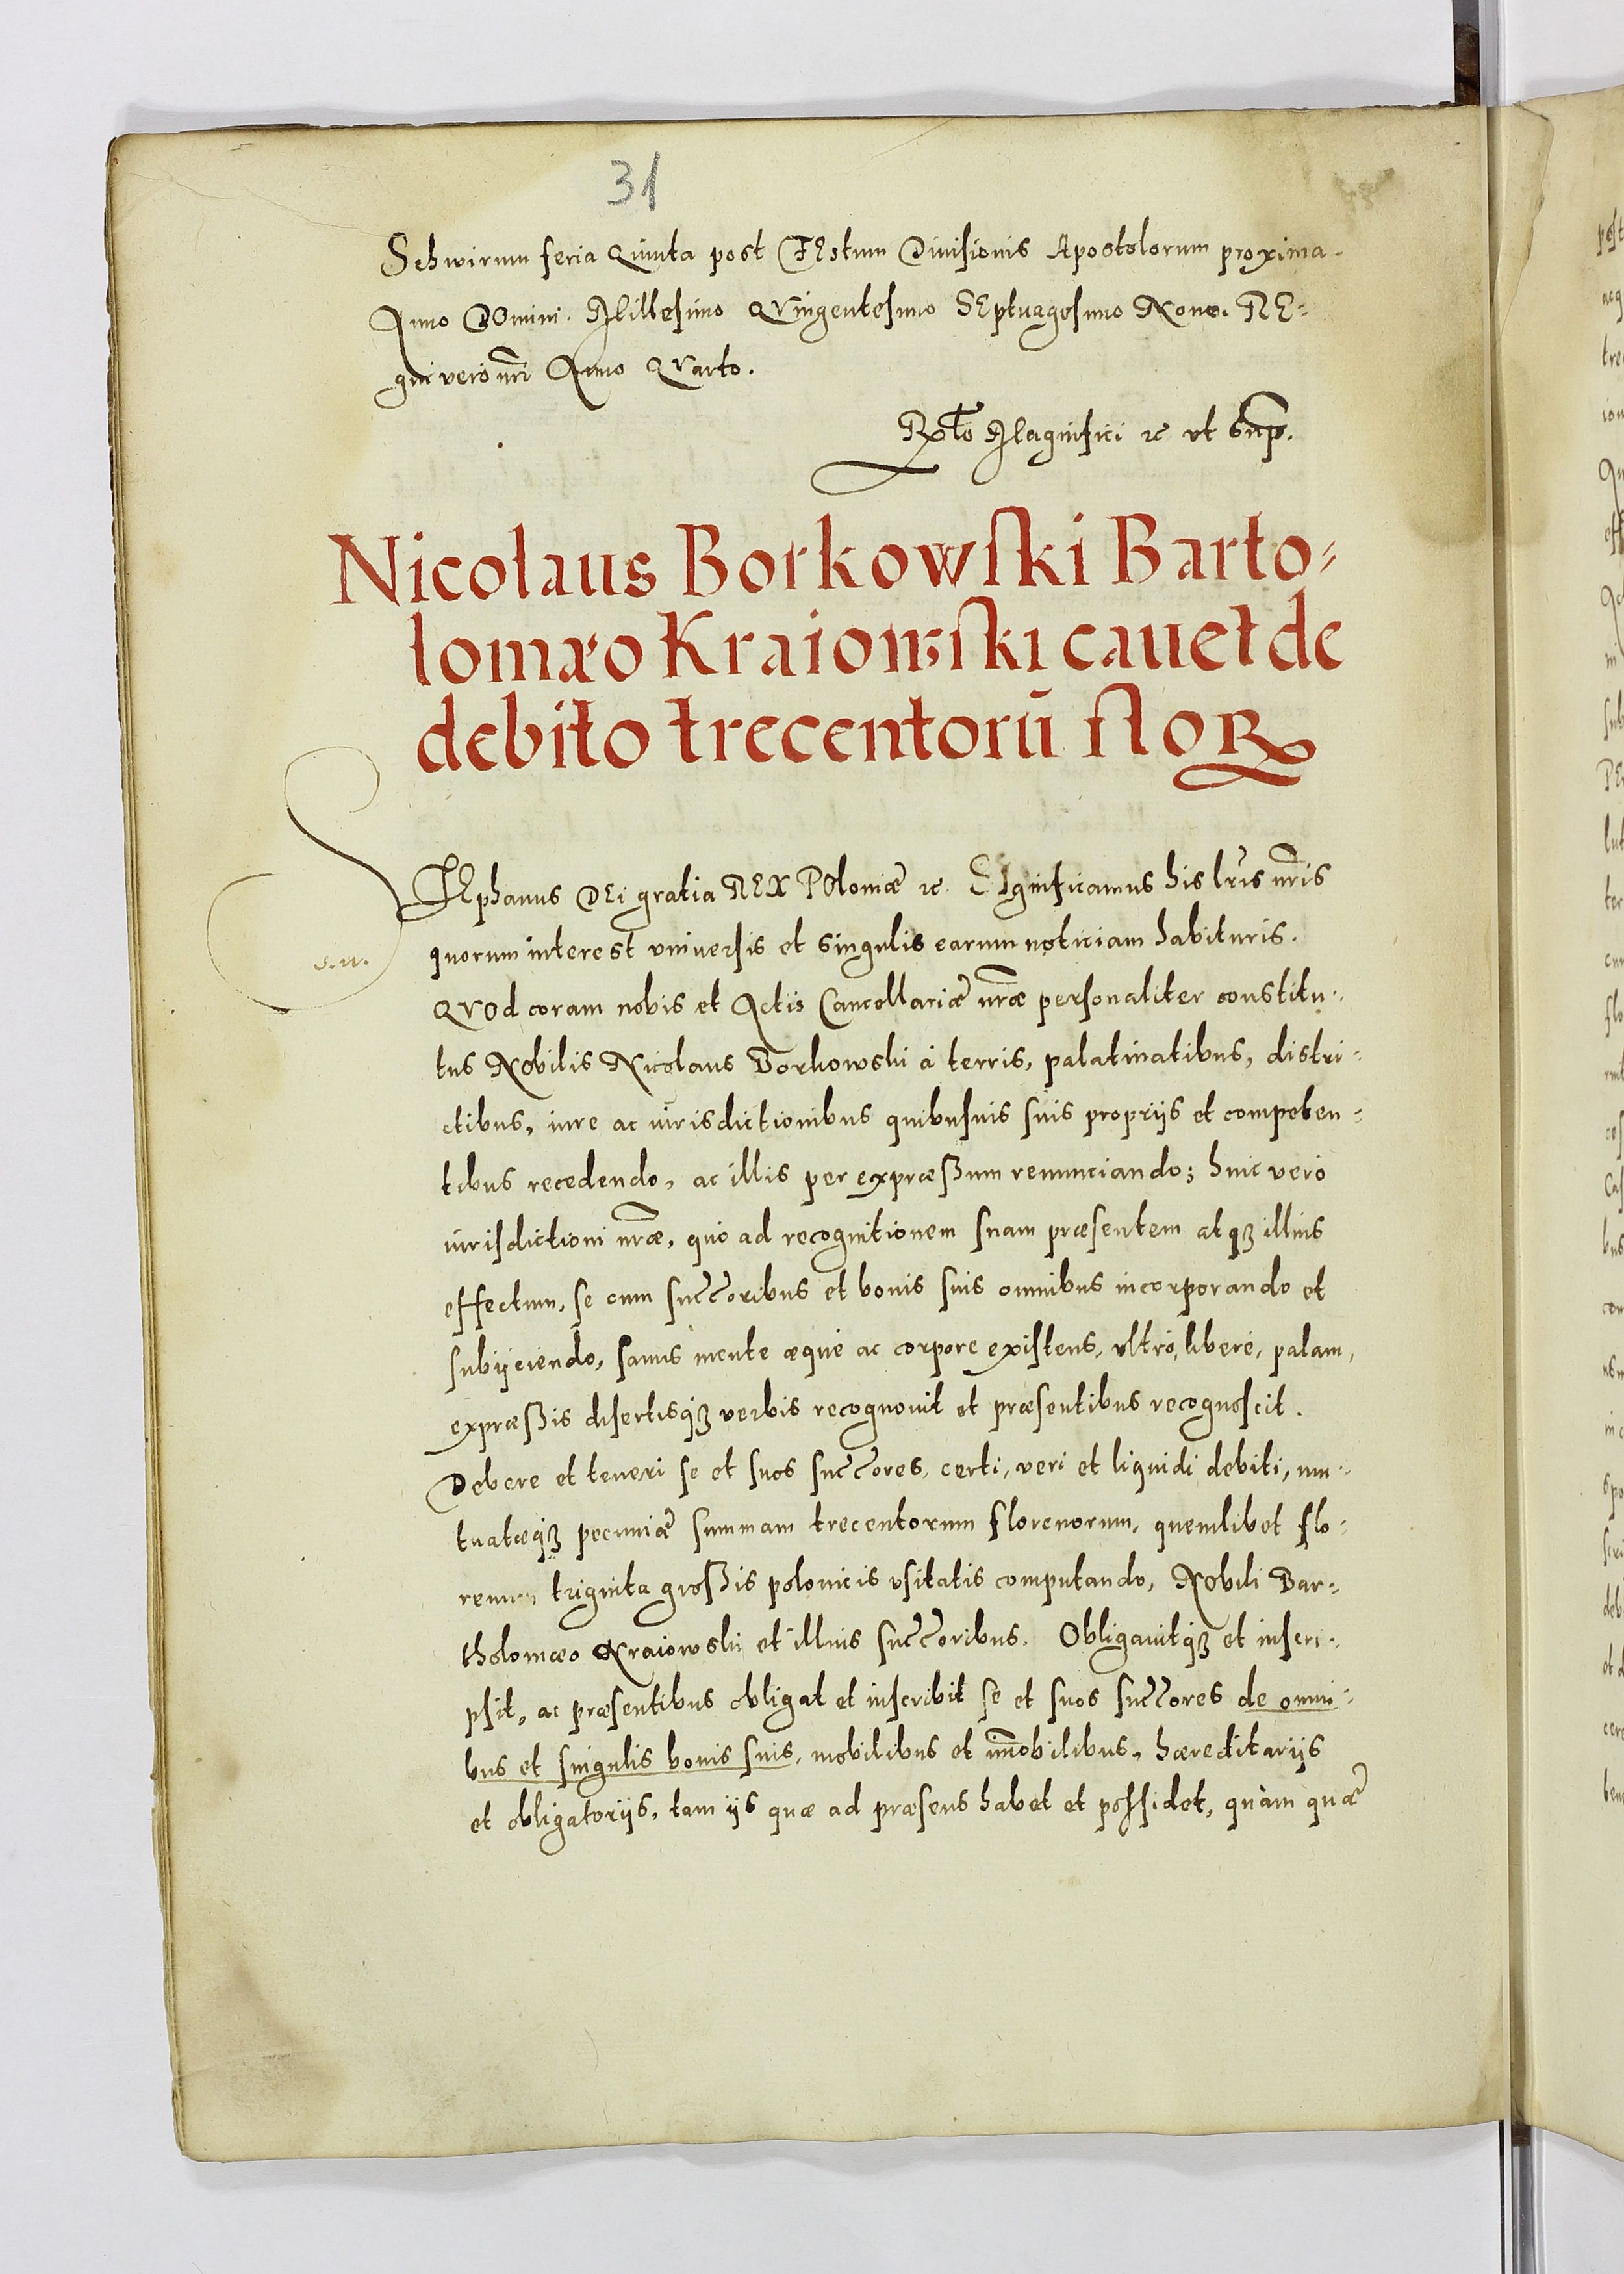 31
Schwirum feria Quinta post FEstum Diuisionis Apostolorum proxima.
Anno DOmini. Millesimo QVingentesimo SEptuagesimo Nono. RE=
gni vero nr̃i Anno QVarto.
Rel̃o Magnifici ꝛc vt sup̃.
Nicolaus Borkowſki Barto=
lomæo Kraiowſki cauet de
debito trecentorū floꝝ
STEphanus DEi gratia REX POloniæ ꝛc. SIgnificamus his lr̃is nr̃is
s.w.
quorum interest vniuersis et singulis earum noticiam habituris.
QVOd coram nobis et Actis Cancellariæ nr̃æ perſonaliter constitu=
tus Nobilis Nicolaus Borkowski à terris, palatinatibus, distri=
ctibus, iure ac iurisdictionibus quibusuis ſuis proprijs et competen=
tibus recedendo, ac illis per expræßum renunciando; huic verò
iurisdictioni nr̃æ, quò ad recognitionem ſuam præsentem atqꝫ illius
effectum, ſe cum ſuccc̃oribus et bonis ſuis omnibus incorporando et
subijciendo, ſanus mente æquè ac corpore exiſtens, vltrò, liberè, palam,
expræßis diſertisqꝫ verbis recognouit et præſentibus recognoſcit.
Debere et teneri ſe et ſuos ſuccc̃ores, certi, veri et liquidi debiti, mu=
tuatæqꝫ pecuniæ summam trecentorum florenorum, quemlibet flo=
renum triginta großis polonicis vſitatis computando, Nobili Bar=
tholomæo Kraiowski et illius ſuccc̃oribus. Obligauitqꝫ et inſcri=
pſit, ac præsentibus obligat et inſcribit ſe et ſuos ſuccc̃ores de omni=
bus et ſingulis bonis ſuis, mobilibus et im̃obilibus, hæreditarijs
et obligatorijs, tam ijs quæ ad præsens habet et poſsidet, quàm quæ